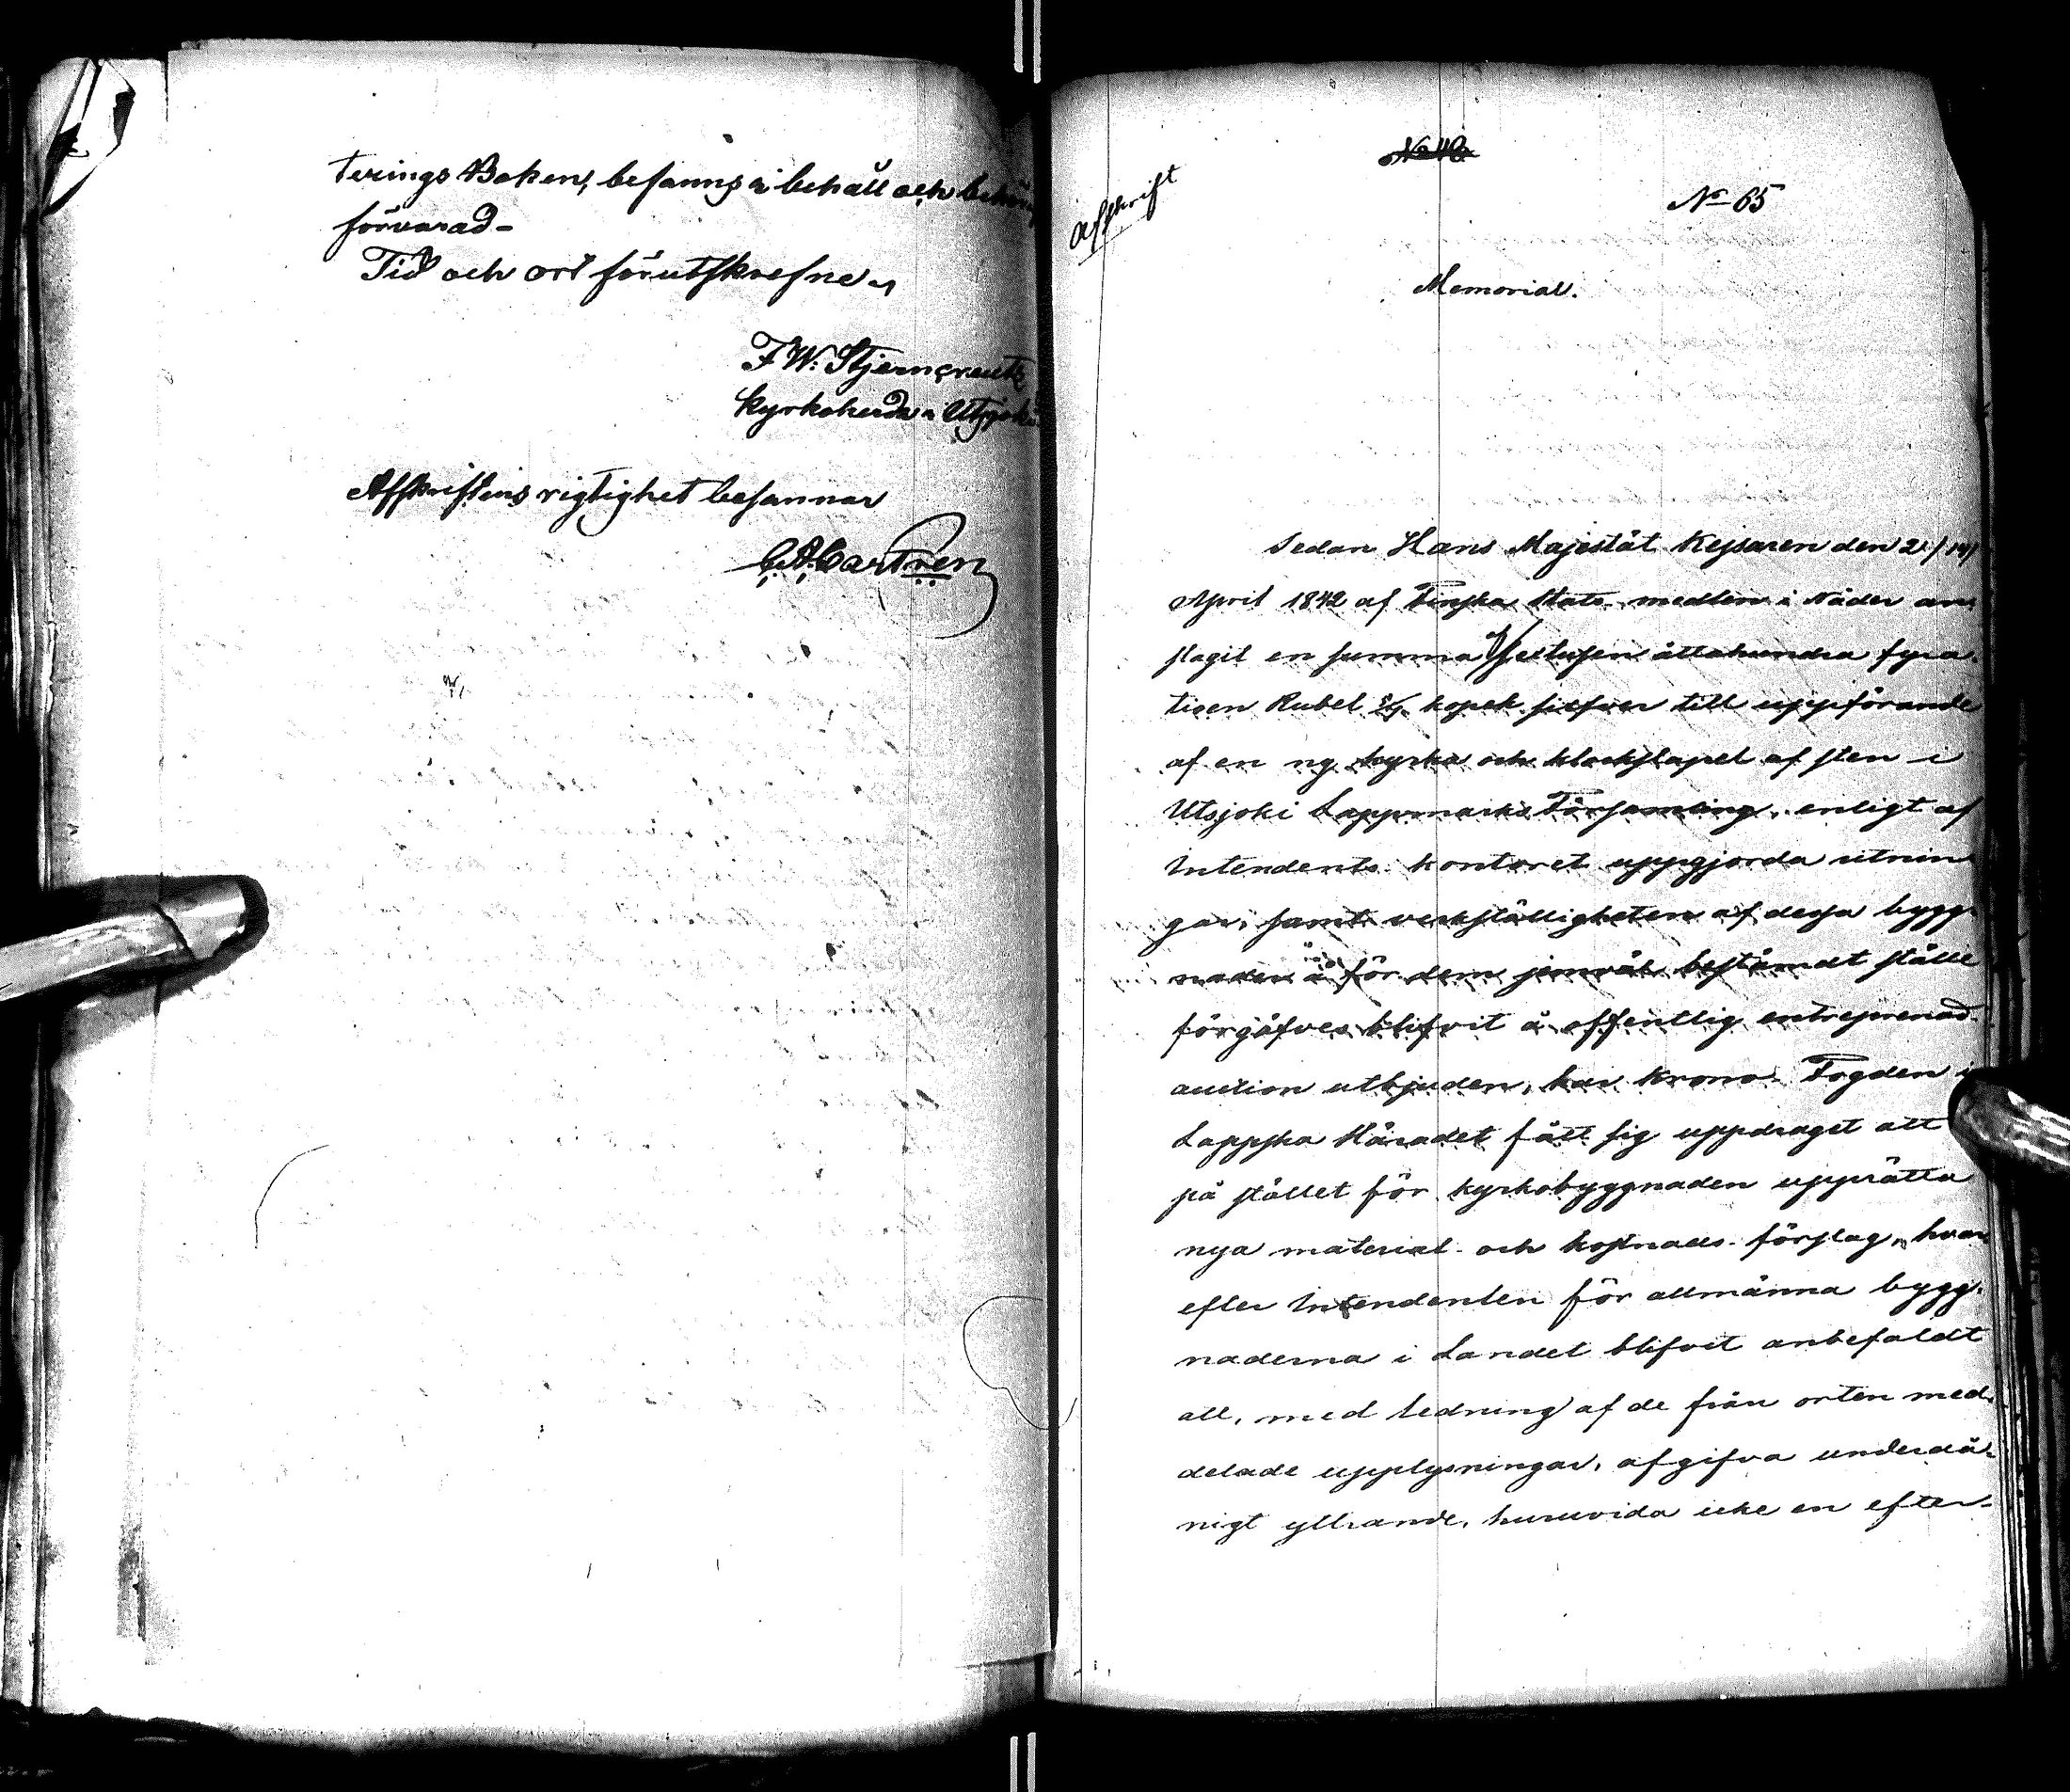 terings Boken, befanns i behåll och behör
förvarad-
Tid och ort förutskrefne
F W. Stjerncreutz
Kyrkoherde i Utsjoki
Afskriftens rigtighet besannar
C A Castren
No 48
No 65
Afskrift
Memorial.
Sedan Hans Majestät Kejsaren den 2/14
April 1842 af Finska Stats medlen i Nåder an-
slagit en summa Sextusen åttahundra fyra-
tioen Rubel kopek silfver till uppförande
af en ny kyrka och klockstapel af sten i
Utsjoki Lappmarks Församling, enligt af
Intendents kontoret uppgjorda ritnin
gar, samt verkställigheten af dessa bygg-
nader å för dem jemväl bestämdt ställe
förgäfves blifvit å offentlig entreprenad-
auction utbjuden, har Krono-Fogden i
Lappska Häradet fått sig uppdraget att
på stället för kyrkobyggnaden upprätta
nya material- och kostnads-förslag, hvar
efter Intendenten för allmänna bygg-
naderna i Landet blifvit anbefaldt
att, med ledning af de från orten med-
delade upplysningar, afgifva underdå-
nigt yttrande, huruvida icke en efter-